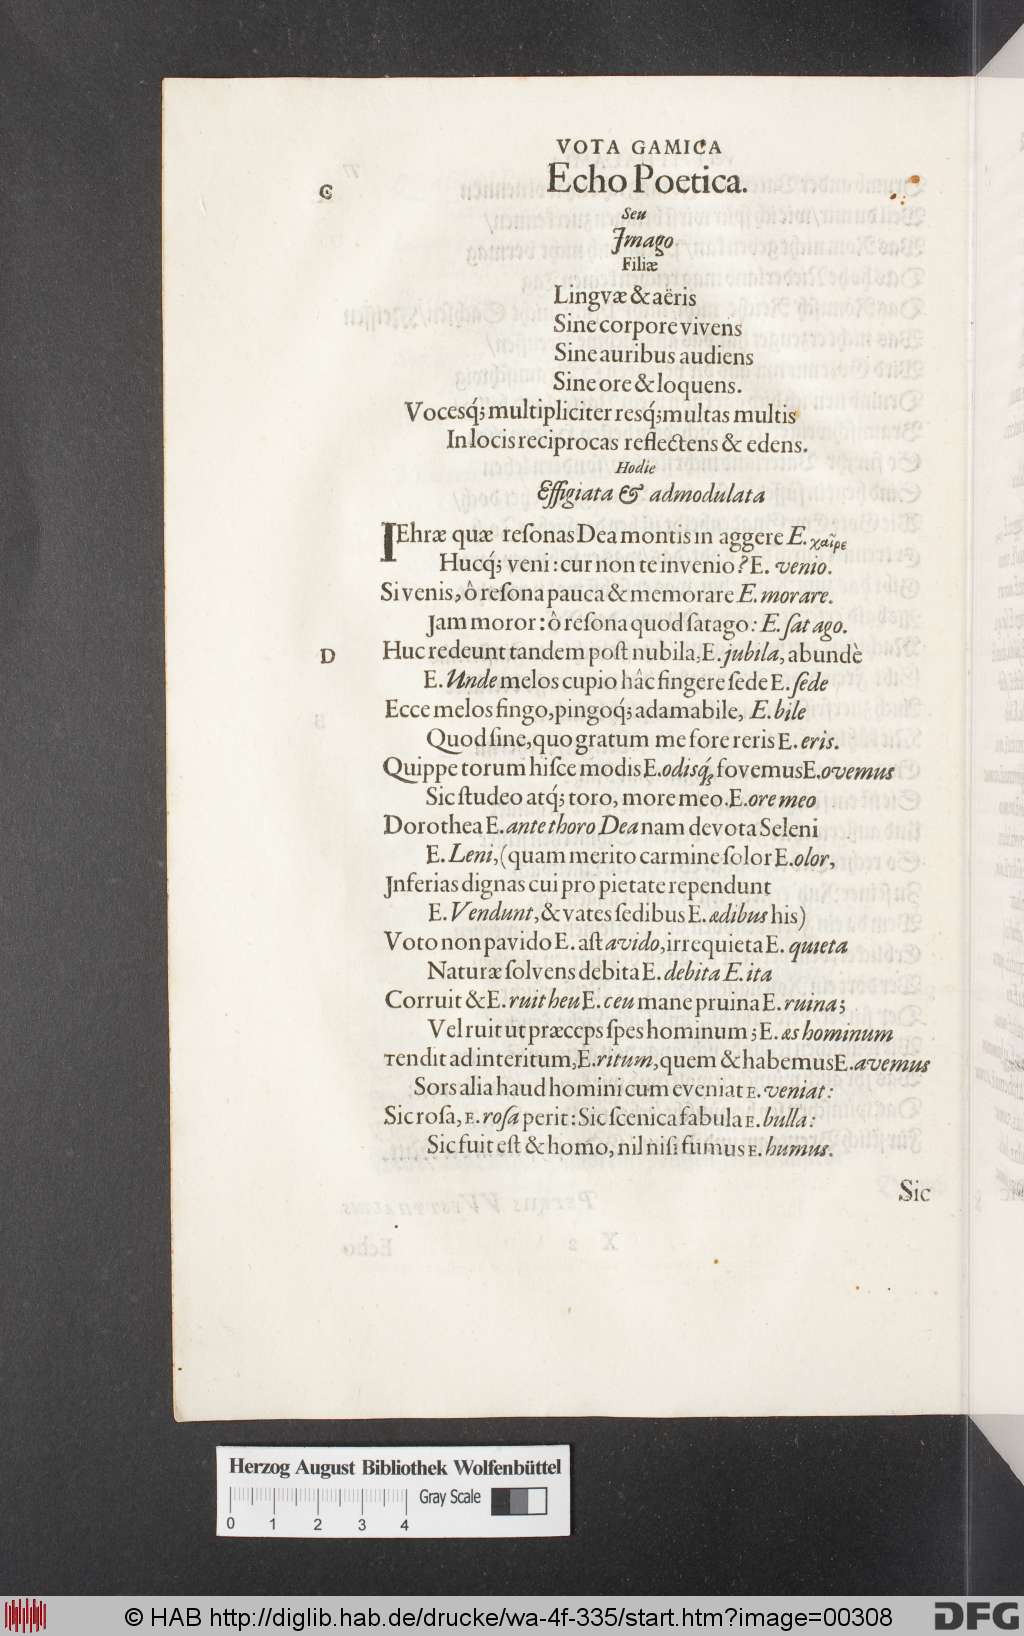 VOTA GAMICA
C
Echo Poetica.
Seu
Jmago
Filiæ
Lingvæ & aëris
Sine corpore vivens
Sine auribus audiens
Sine ore & loquens.
Vocesq́; multipliciter resq́; multas multis
In locis reciprocas reflectens & edens.
Hodie
Effigiata & admodulata
IEhræ quæ reſonas Dea montis in aggere E. χαῖρε
Hucq́; veni: cur non te invenio? E. venio.
Si venis, ô reſona pauca & memorare E. morare.
Jam moror: ô reſona quod ſatago: E. ſat ago.
D Huc redeunt tandem poſt nubila, E. jubila, abundè
E. Unde melos cupio hâc fingere ſede E. ſede
Ecce melos fingo, pingoq́; adamabile, E. bile
Quod ſine, quo gratum me fore reris E. eris.
Quippe torum hiſce modis E. odisq́; fovemus E. ovemus
Sic ſtudeo atq́; toro, more meo. E. ore meo
Dorothea E. ante thoro Dea nam devota Seleni
E. Leni, (quam merito carmine ſolor E. olor,
Jnferias dignas cui pro pietate rependunt
E. Vendunt, & vates ſedibus E. ædibus his)
Voto non pavido E. aſt avido, irrequieta E. quieta
Naturæ ſolvens debita E. debita E. ita
Corruit & E. ruit heu E. ceu mane pruina E. ruina;
Vel ruit ut præceps ſpes hominum; E. æs hominum
Tendit ad interitum, E. ritum, quem & habemus E. avemus
Sors alia haud homini cum eveniat E. veniat:
Sic roſa, E. roſa perit: Sic ſcenica fabula E. bulla:
Sic fuit eſt & homo, nil niſi fumus E. humus.
Sic
Herzog August Bibliothek Wolfenbüttel
Gray Scale
0 1 2 3 4
© HAB http://diglib.hab.de/drucke/wa-4f-335/start.htm?image=00308
DFG